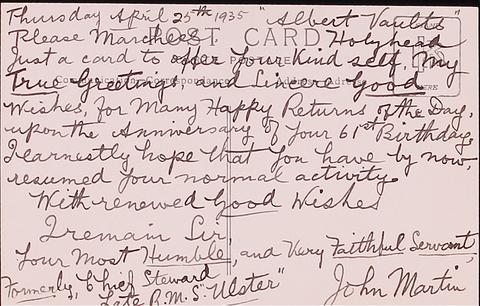 Thursday April 25th 1935 "Albert Vaults"
Please March 28th Holyhead
POST CARD
Just a card to offer Your Kind self, My
True Greetings and Sincere Good
Wishes, for Many Happy Returns of the Day,
upon the Anniversary of Your 61st Birthday,
I earnestly hope that You have by now,
resumed Your normal activity.
With renewed Good Wishes
I remain Sir,
Your Most Humble, and Very Faithful Servant,
Formerly, Chief Steward John Martin
Late R.M.S. "Ulster"